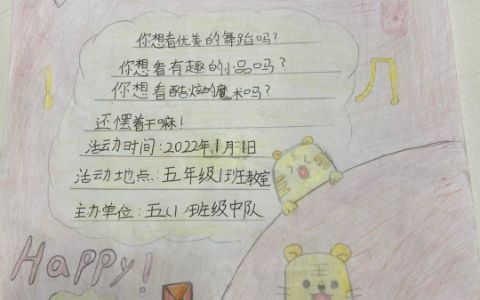 你想看优美的舞蹈吗？
你想看有趣的小品吗？
你想看酷炫的魔术吗？
还摆着干嘛！
活动时间：2022年1月1日
活动地点：五年级1班教室
主办单位：五（1）班级中队
Happy！
王